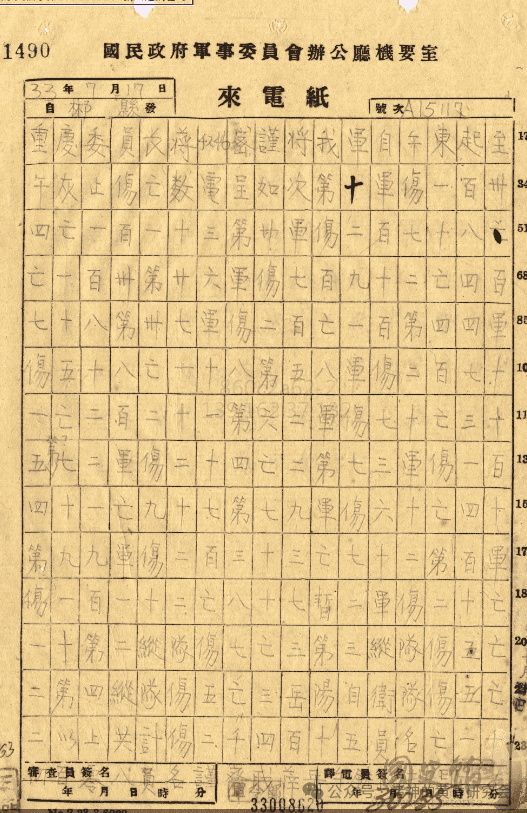 1490 國民政府軍事委員會辦公廳機要室
33年 月17日 來電紙
自 縣發 號次 A15117
重慶委員長蔣 密謹將我軍自午東起至 17
午灰止傷亡數電呈如次第十軍傷一百卅 34
四亡一百一十三第廿軍傷二百七十八 51
亡一百卅第廿六軍傷七百九十二亡四百 68
七十八第卅七軍傷二百亡一百第四四軍 85
傷五十八亡 十八第五八軍傷二百七十 10
一亡二百二十一第六二軍傷七十亡三十 11
五第七二軍傷二十四亡二第七三軍傷一百 13
四十一亡九十七第七九軍傷六十亡四十 15
第九九軍傷二百三十三亡七十二第百軍 17
傷一百一十二亡八十七暫二軍傷二十亡 18
一十第二縱隊傷七亡三第三縱隊傷五亡 20
二第四縱隊傷五亡三岳陽自衛隊傷五亡
二以上共計傷二千四百十五員名亡一千 23
審查員簽名 譯電員簽名
年 月 日 時 分 年 月 日 時 分
33008620
公众号